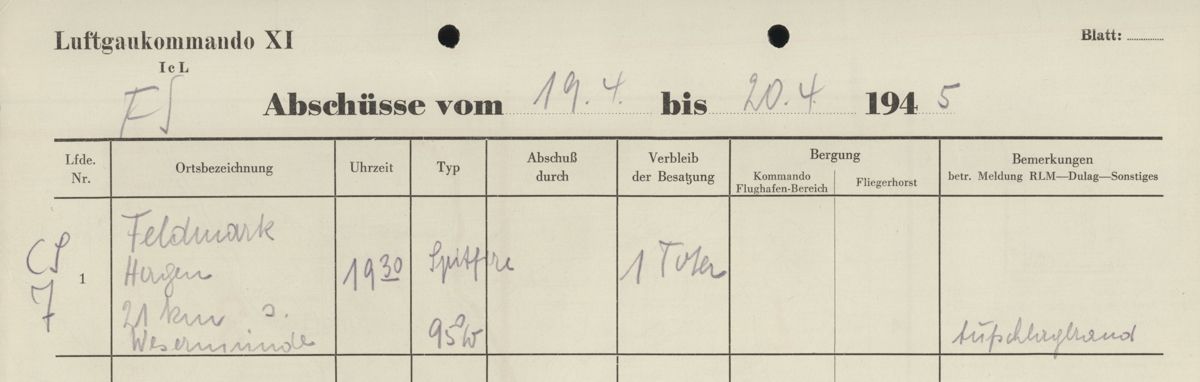 Luftgaukommando XI
Blatt:
I c L
FS
Abschüsse vom 19. 4. bis 20. 4. 194 5
Lfde. Nr.
Ortsbezeichnung
Uhrzeit
Typ
Abschuß durch
Verbleib der Besatzung
Bergung
Kommando Flughafen-Bereich
Fliegerhorst
Bemerkungen
betr. Meldung RLM—Dulag—Sonstiges
CS
7
1
Feldmark
Hagen
21 km s.
Wesermünde
19 30
Spitfire
95%
1 Toter
Aufschlagbrand